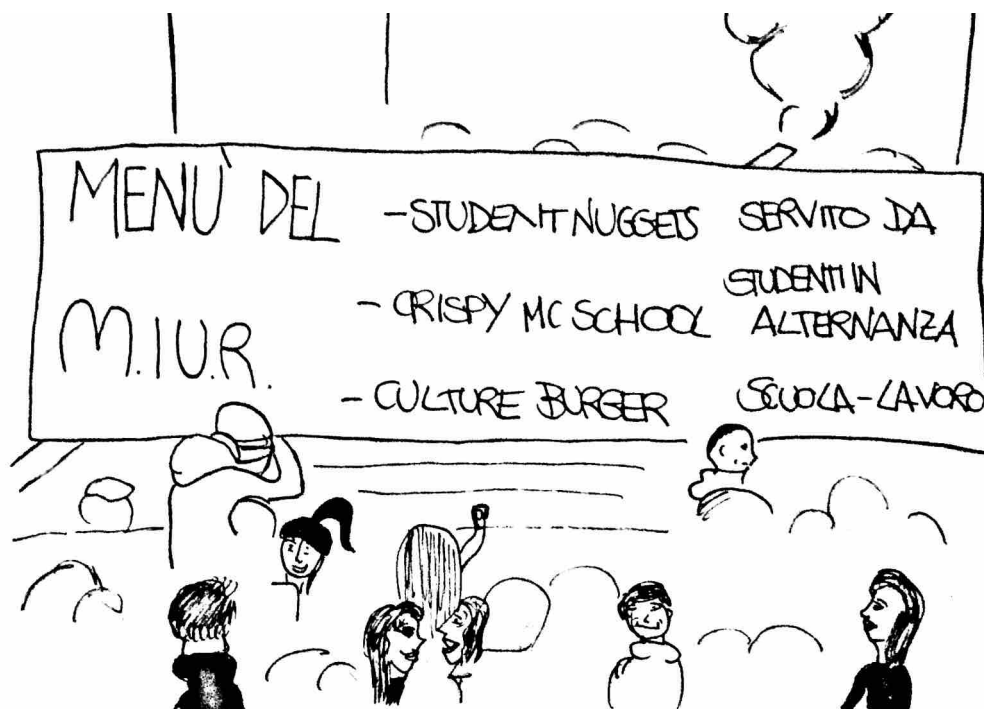 MENÙ DEL
M.I.U.R.
- STUDENT NUGGETS
- CRISPY MC SCHOOL
- CULTURE BURGER
SERVITO DA
STUDENTI IN
ALTERNANZA
SCUOLA-LAVORO